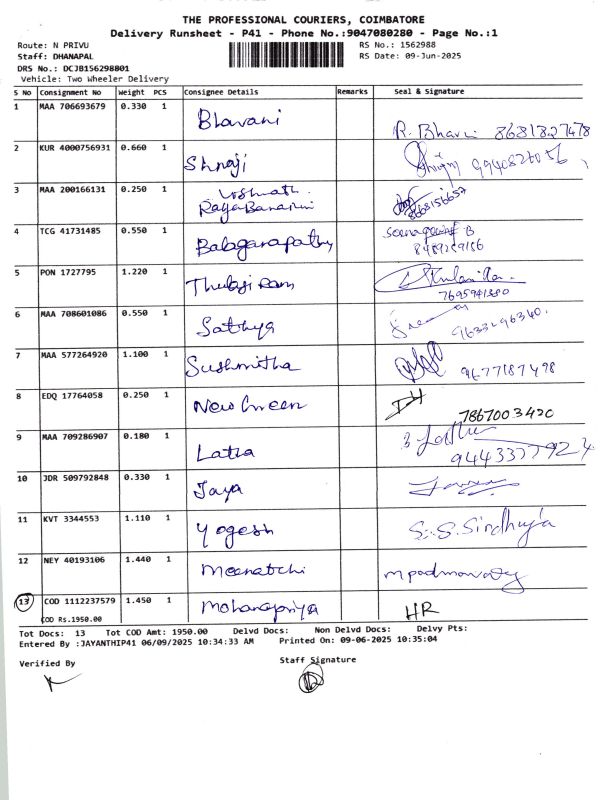 THE PROFESSIONAL COURIERS, COIMBATORE
Delivery Runsheet - P41 - Phone No.:9047080280 - Page No.:1
Route: N PRIVU
RS No.: 1562988
Staff: DHANAPAL
RS Date: 09-Jun-2025
DRS No.: DCJB156298801
Vehicle: Two Wheeler Delivery
S No Consignment No Weight PCS Consignee Details Remarks Seal & Signature
1 MAA 706693679 0.330 1 Bhavani R. Bhavani 8681827478
2 KUR 4000756931 0.660 1 Shnaji
3 MAA 200166131 0.250 1 8668156657
4 TCG 41731485 0.550 1 Balaganapathy B 8489259156
5 PON 1727795 1.220 1 Thulasi Ram 7695941380
6 MAA 708601086 0.550 1 Sathya 9633296340.
7 MAA 577264920 1.100 1 Sushmitha 9677187498
8 EDQ 17764058 0.250 1 New Green 7867003420
9 MAA 709286907 0.180 1 Latha 9443377924
10 JDR 509792848 0.330 1 Jaya
11 KVT 3344553 1.110 1 Yogesh S.S. Sirdhuja
12 NEY 40193106 1.440 1 Meenatchi mpadmavathy
13 COD 1112237579 1.450 1 Mohanapriya HR
COD Rs.1950.00
Tot Docs: 13 Tot COD Amt: 1950.00 Delvd Docs: Non Delvd Docs: Delvy Pts:
Entered By :JAYANTHIP41 06/09/2025 10:34:33 AM Printed On: 09-06-2025 10:35:04
Verified By Staff Signature